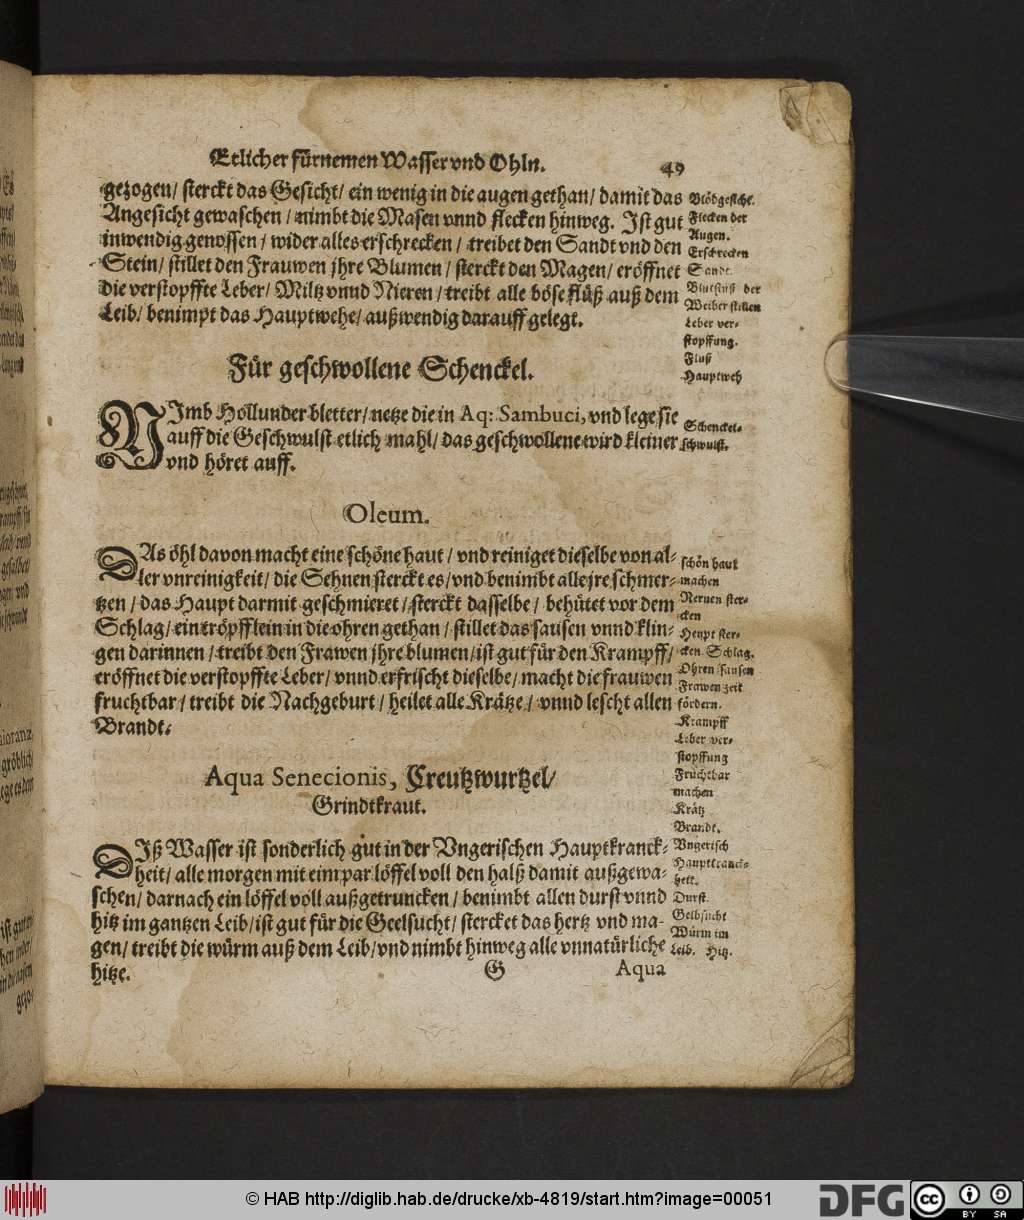 Etlicher fürnemen Wasser vnd Ohln. 49
gezogen/ sterckt das Gesicht/ ein wenig in die augen gethan/ damit das
Angesicht gewaschen/ nimbt die Masen vnnd flecken hinweg. Ist gut
inwendig genossen/ wider alles erschrecken/ treibet den Sandt vnd den
Stein/ stillet den Frauwen jhre Blumen/ sterckt den Magen/ eröffnet
die verstopffte Leber/ Miltz vnnd Nieren/ treibt alle böse flüß auß dem
Leib/ benimpt das Hauptwehe/ außwendig darauff gelegt.
Blödgesicht.
Flecken der
Augen.
Erschrecken
Sandt.
Blutfluß der
Weiber stillen
Leber ver-
stopffung.
Fluß
Hauptweh
Für geschwollene Schenckel.
NImb Hollunder bletter/ netze die in Aq: Sambuci, vnd lege sie
auff die Geschwulst etlich mahl/ das geschwollene wird kleiner
vnd höret auff.
Schenckel-
schwulst.
Oleum.
DAs öhl davon macht eine schöne haut/ vnd reiniget dieselbe von al-
ler vnreinigkeit/ die Sehnen sterckt es/ vnd benimbt alle jre schmer-
tzen/ das Haupt darmit geschmieret/ sterckt dasselbe/ behütet vor dem
Schlag/ ein tröpfflein in die ohren gethan/ stillet das sausen vnnd klin-
gen darinnen/ treibt den Frawen jhre blumen/ ist gut für den Krampff/
eröffnet die verstopffte Leber/ vnnd erfrischt dieselbe/ macht die frauwen
fruchtbar/ treibt die Nachgeburt/ heilet alle Krätze/ vnnd lescht allen
Brandt.
schön haut
machen
Neruen ster-
cken
Heupt ster-
cken. Schlag.
Ohren sausen
Frawen zeit
fördern.
Krampff
Leber ver-
stopffung
Fruchtbar
machen
Krätz
Brandt.
Aqua Senecionis, Creutzwurtzel/
Grindtkraut.
DIß Wasser ist sonderlich gut in der Vngerischen Hauptkranck-
heit/ alle morgen mit eim par löffel voll den halß damit außgewa-
schen/ darnach ein löffel voll außgetruncken/ benimbt allen durst vnnd
hitz im gantzen Leib/ ist gut für die Geelsucht/ stercket das hertz vnd ma-
gen/ treibt die würm auß dem Leib/ vnd nimbt hinweg alle vnnatürliche
hitze.
Vngerisch
Hauptkranck-
heit.
Durst.
Gelbsucht
Würm im
Leib. Hitz.
G Aqua
© HAB http://diglib.hab.de/drucke/xb-4819/start.htm?image=00051
DFG
cc
BY SA